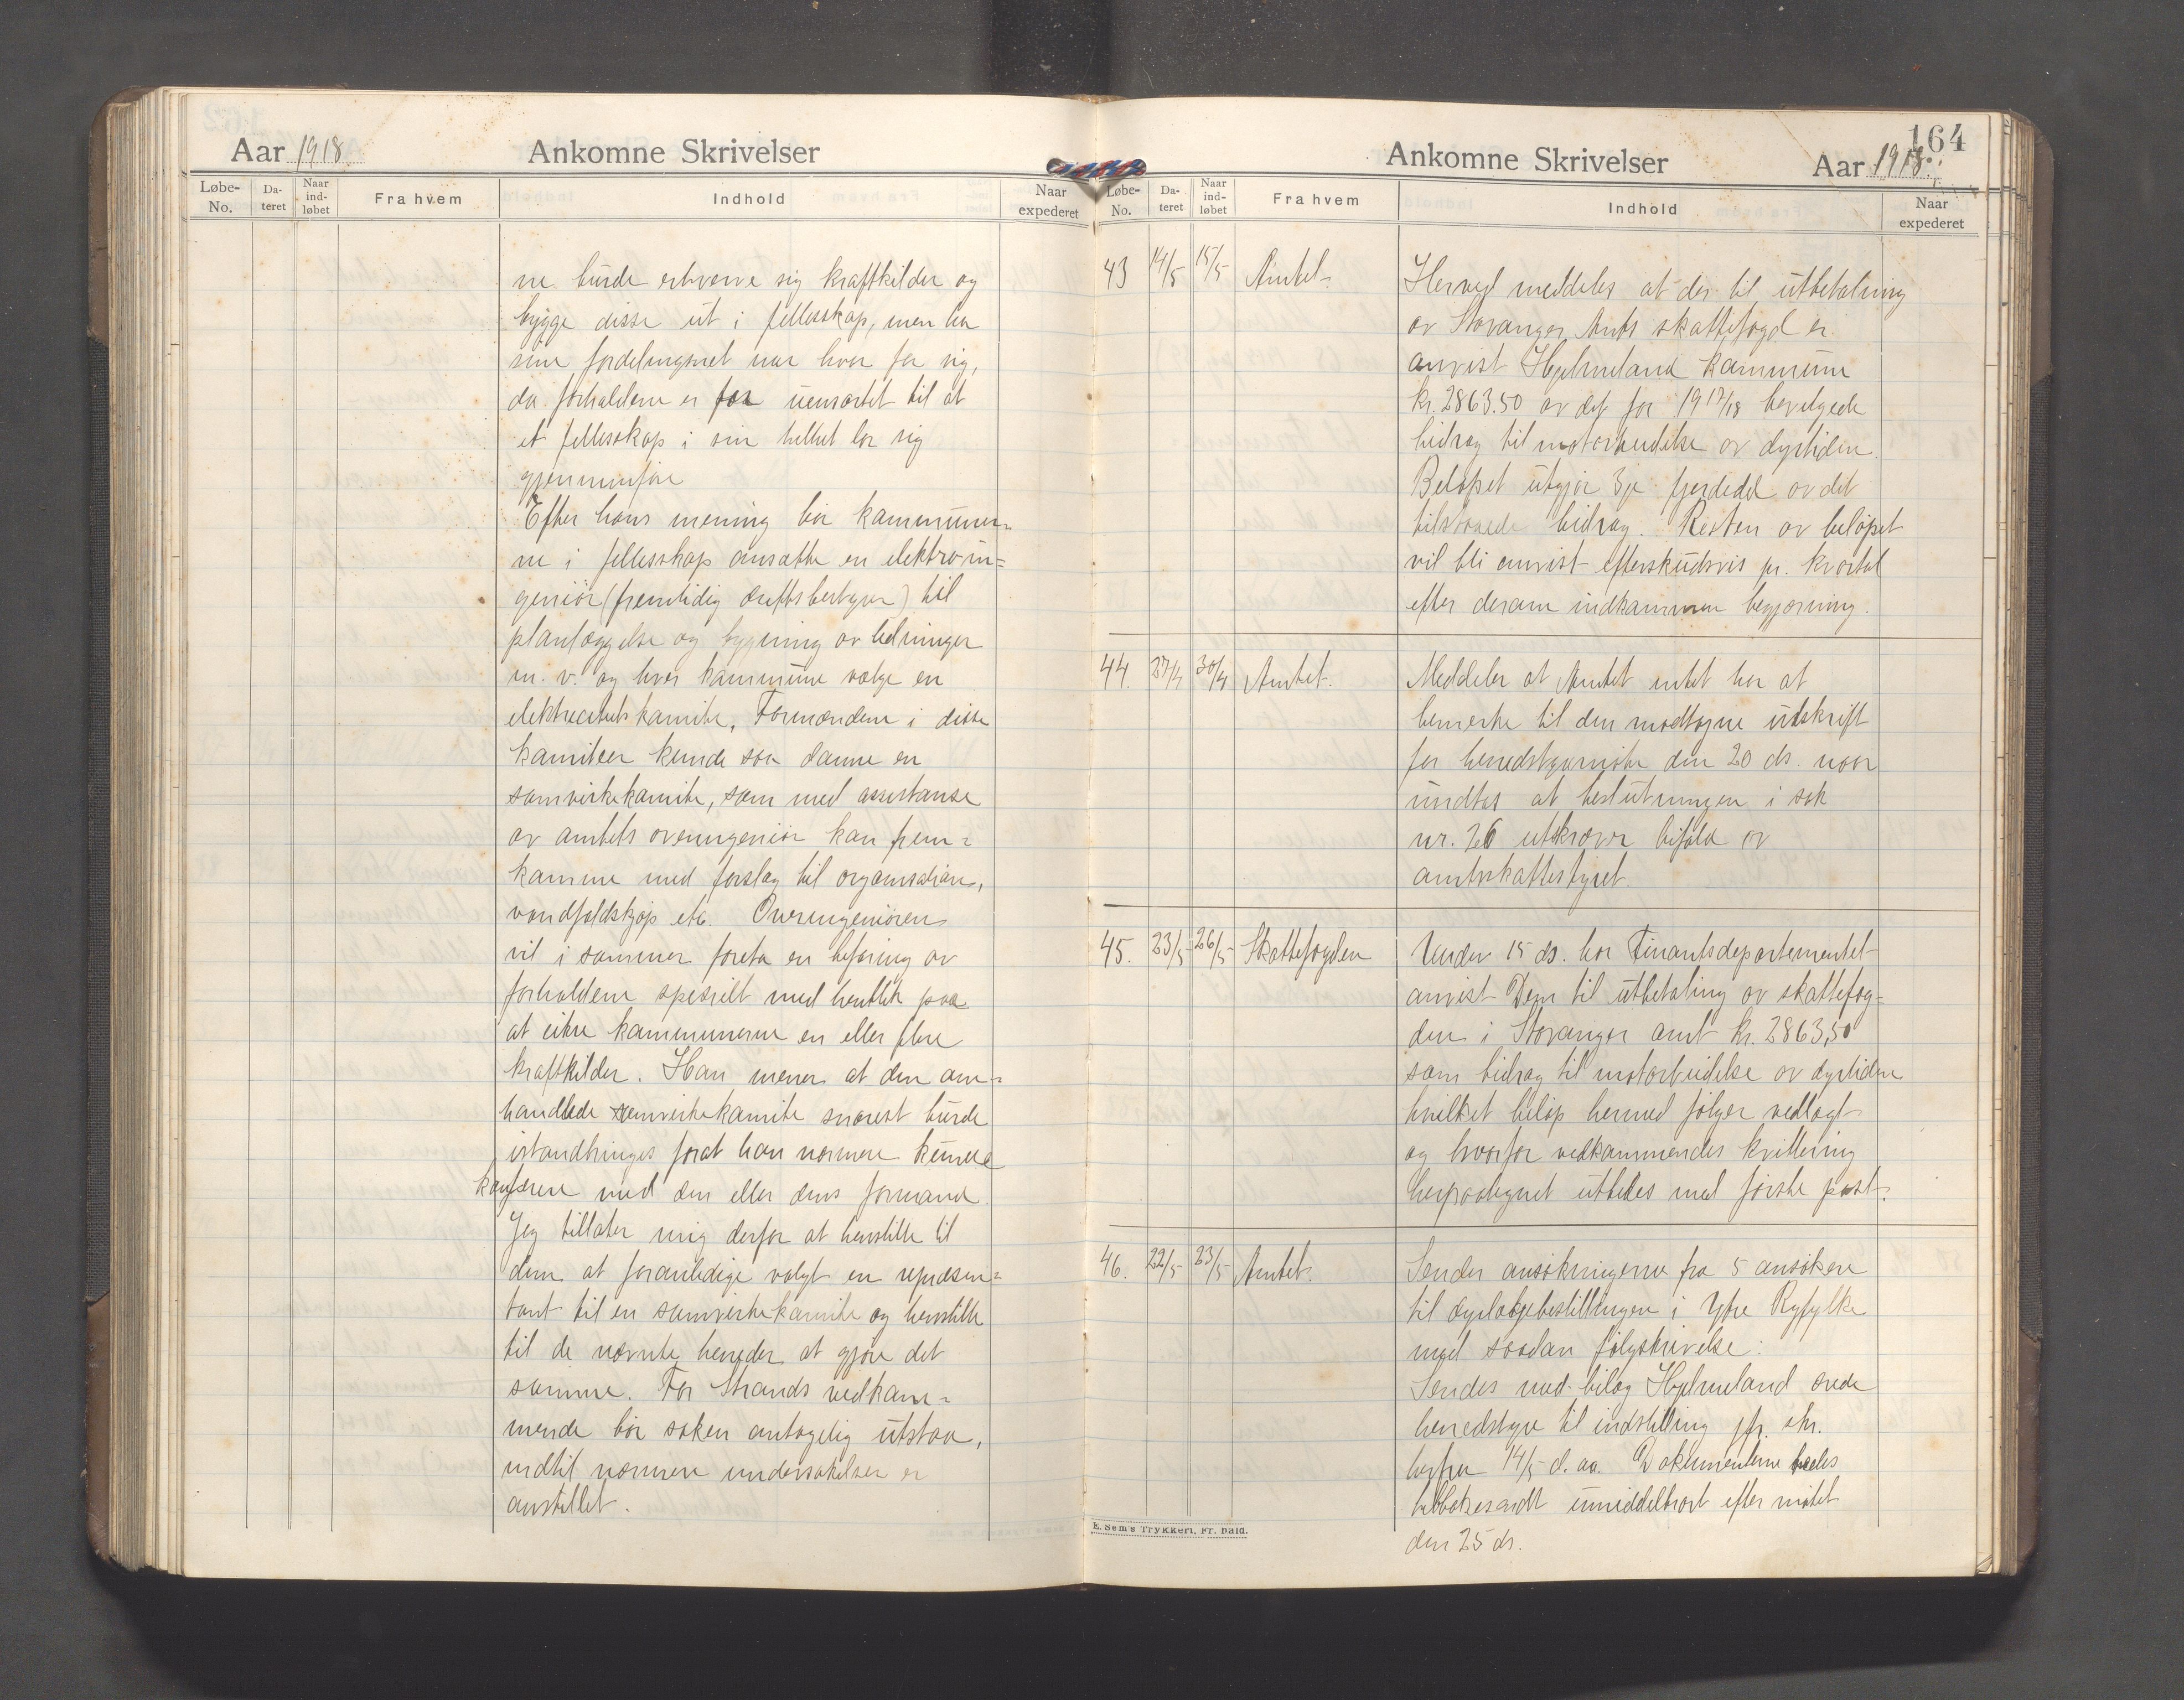 Aar 1918.
Ankomne Skrivelser
Løbe-No.
Da-teret
Naar ind-løbet
Fra hvem
Indhold
Naar expederet
ne burde erhverve sig kraftkilder og
bygge disse ut i fellesskap, men ha
sine fordelingsnet hver for sig,
da forholdene er for uensartet til at
et fellesskap i sin helhet lar sig
gjennemføre
Efter hans mening bör kommuner=
ne i fellesskap ansætte en elektroin=
geniör (fremtidig driftsbestyrer) til
planlæggelse og bygning av ledninger
m. v. og hver kommune vælge en
elektricitetskomite. Formændene i disse
komiteer kunde saa danne en
samvirkekomite, som med assistanse
av amtets overingeniör kan frem=
komme med forslag til organisation,
vandfaldskjöp etc. Overingeniören
vil i sommer foreta en befaring av
forholdene specielt med henblik paa
at sikre kommunerne en eller flere
kraftkilder. Han mener at den om=
handlede samvirkekomite snarest burde
istandbringes forat han nærmere kunde
konferere med den eller dens formand.
Jeg tillater mig derfor at henstille til
dem at foranledige valgt en repræsen=
tant til en samvirkekomite og henstille
til de nævnte herreder at gjöre det
samme. For Strands vedkom=
mende bör saken antagelig utstaa,
indtil nærmere undersökelser er
anstillet.
Ankomne Skrivelser
Aar 1918.
164
Løbe-No.
Da-teret
Naar ind-løbet
Fra hvem
Indhold
Naar expederet
43 14/5 15/5 Amtet. Herved meddeles at der til utbetaling
av Stavanger Amts skattefogd er
anvist Hjelmeland kommune
kr. 2863.50 av det for 1917/18 bevilgede
bidrag til motarbeidelse av dyrtiden.
Belöpet utgjör 3je fjerdedel av det
tilstaaede bidrag. Resten av belöpet
vil bli anvist efterskudsvis pr. kvartal
efter derom indkommen begjæring.
44. 27/4 30/4 Amtet. Meddeler at Amtet intet har at
bemerke til den modtagne utskrift
for herredstyremöte den 20 ds. naar
undtas at beslutningen i sak
nr. 26 utkræver bifald av
amtsskattestyret.
45. 23/5 26/5 Skattefogden Under 15 ds. har Finantsdepartementet
anvist Dem til utbetaling av skattefog=
den i Stavanger amt kr. 2863,50
som bidrag til motarbeidelse av dyrtiden
hvilket belöp hermed fölger vedlagt
og hvorfor vedkommendes kvittering
herpaategnet utbedes med förste post.
46. 22/5 23/5 Amtet. Sender ansökningerne fra 5 ansökere
til dyrlægebestillingen i Ytre Ryfylke
med saadan fölgeskrivelse:
Sendes med bilag Hjelmeland
herredstyre til indstilling jfr. skr.
herfra 14/5 d. aa. Dokumenterne bedes
tilbakesendt umiddelbart efter mötet
den 25 ds.
E. Sem's Trykkeri, Fr.hald.